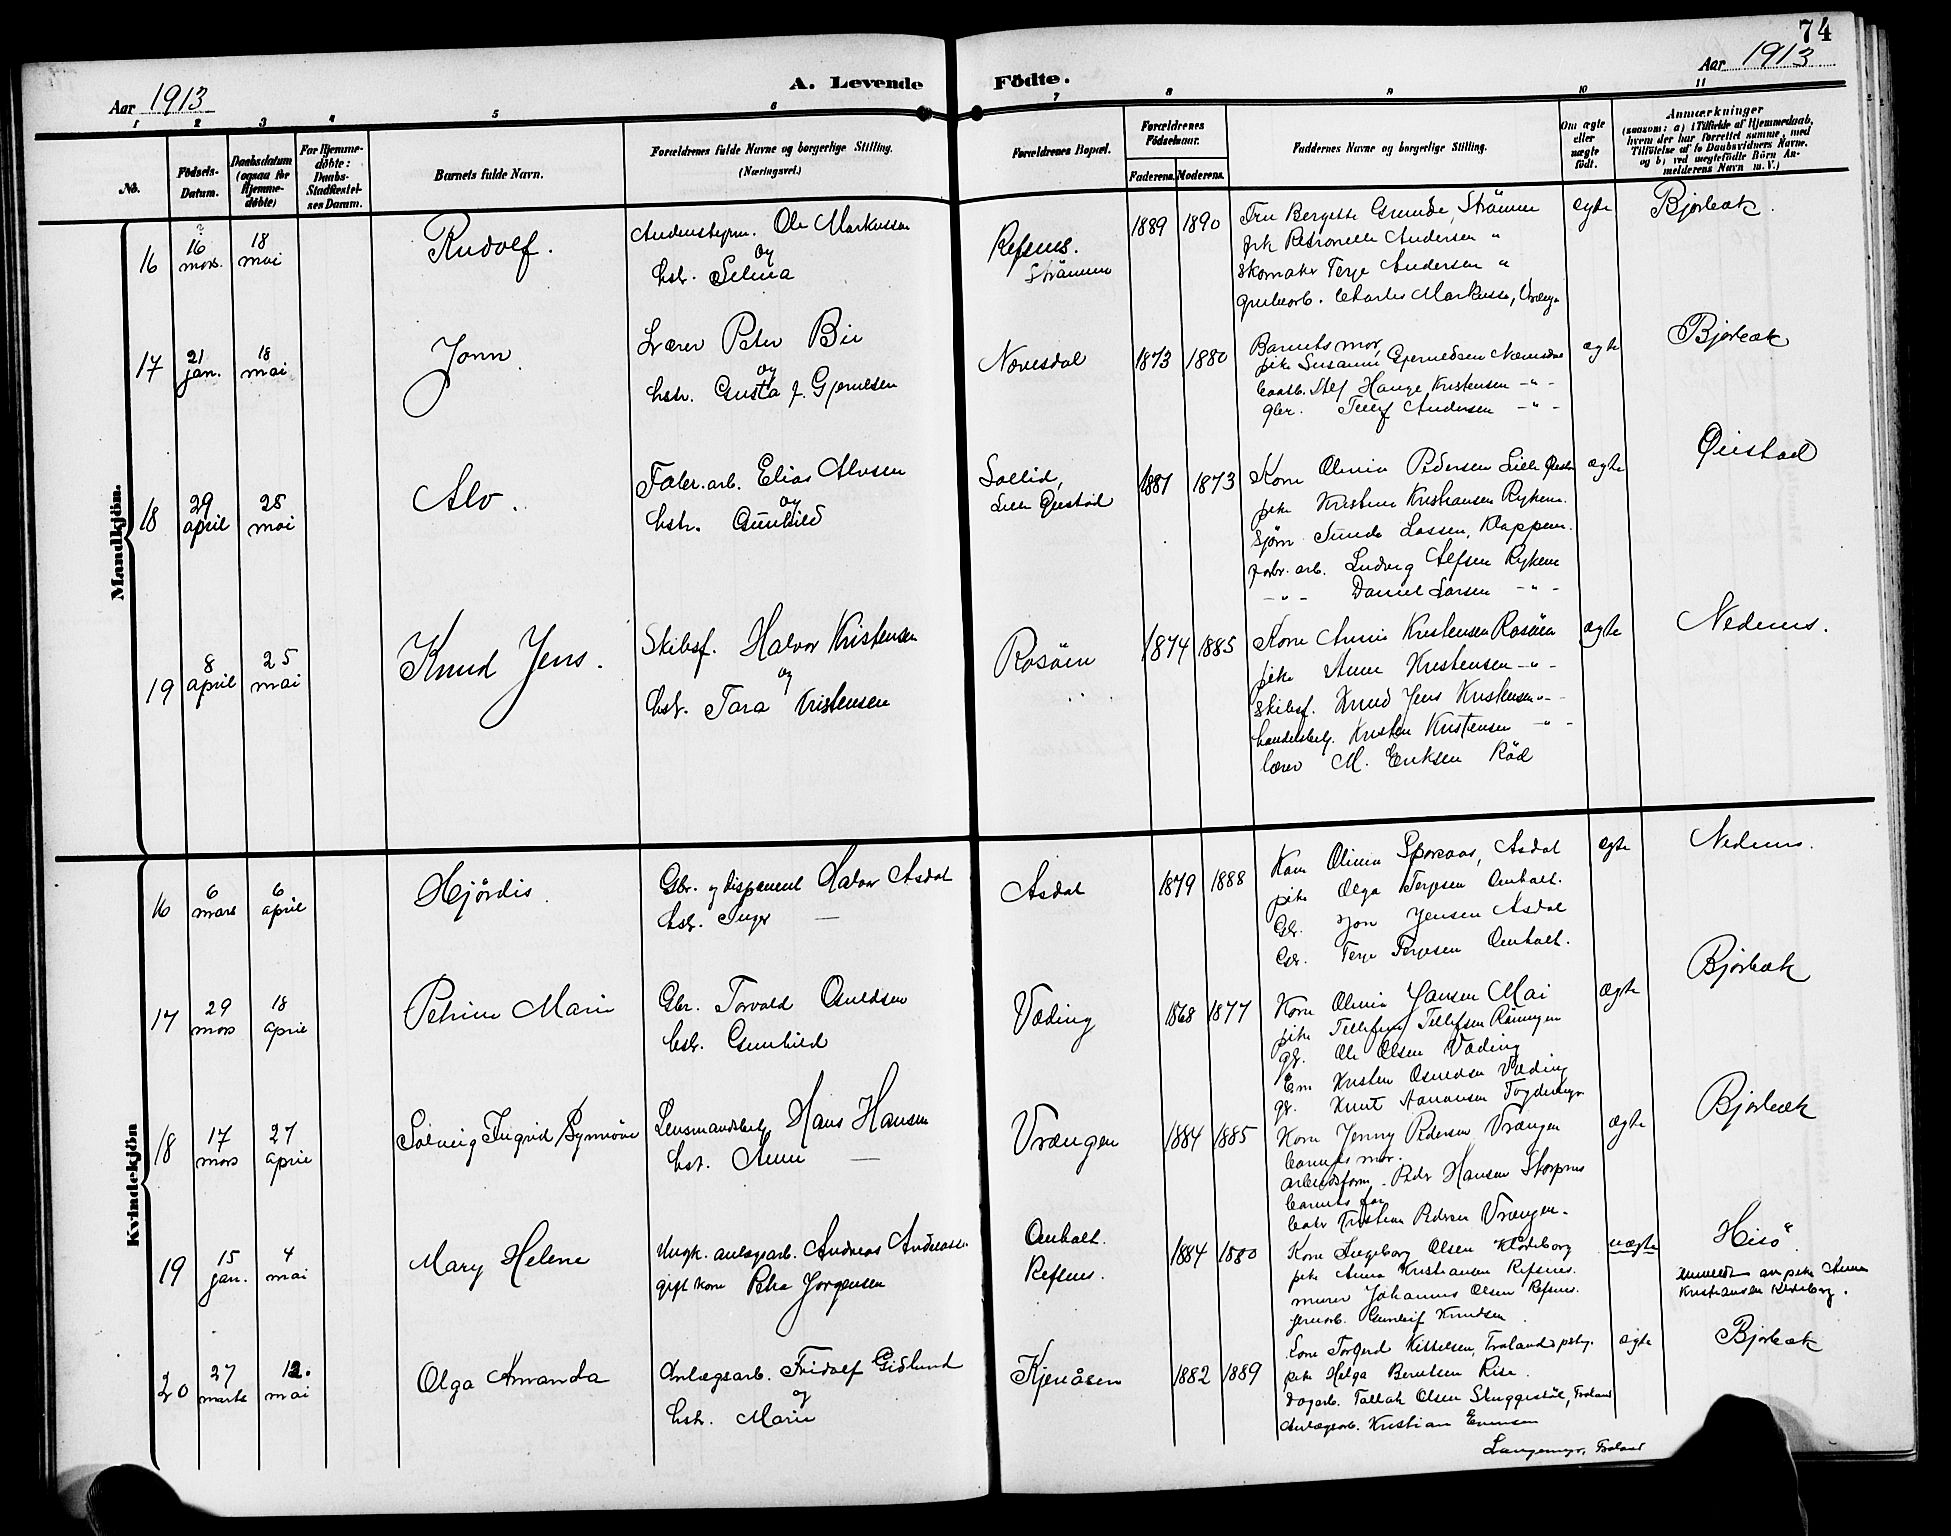 74
Aar 1913
A. Levende Födte.
Aar 1913
1 2 3 4 5 6 7 8 9 10 11
No.
Födsels-
Datum.
Daabsdatum
(ogsaa for
Hjemme-
döbte)
For Hjemme-
döbte:
Daabs-
Stadfæstel-
ses Datum.
Barnets fulde Navn.
Forældrenes fulde Navne og borgerlige Stilling.
(Næringsvei.)
Forældrenes Bopæl.
Forældrenes
Födselsaar.
Faderens. Moderens.
Faddernes Navne og borgerlige Stilling.
Om ægte
eller
uægte
födt.
Anmærkninger
(saasom: a) i Tilfælde af Hjemmedaab,
hvem der har forrettet samme, med
Tilföielse af to Daabsvidners Navne,
og b) ved uægtefödte Börn An-
melderens Navn m. V.)
Mandkjön.
16
16
mars.
18
mai
Rudolf.
Ole Markussen
og
hstr. Selma
Refsnes.
Strömme
1889 1890
Fru Bergette Strömme
frk Petronelle Andersen "
Skomaker Terje Andersen "
grubearb. Charles
ægte
Bjorbæk.
17
21
jan.
18
mai
Jonn.
Lærer Peter
og
hstr. Gusta J. Gjermdsen
Nævesdal
1873 1880
Barnets mor,
pike Susanne
Hauge Kristensen - " -
gbr. Tellef Andersen - " -
ægte
Bjorbæk
18
29
april
25
mai
Alv.
Elias Alvsen
og
hstr. Gunhild
Lille Øiestad
1881 1873
Kone Olivia Pedersen Lille
pike Kristine Kristiansen Rykene.
Sjöm. Larsen,
arb. Ludvig Alfsen Rykene
- " - Daniel Larsen - " -
ægte
Øiestad
19
8
april
25
mai
Knud Jens.
Skibsf. Halvor Kristensen
og
hst. Tara Kristensen
Rosöen
1874 1885
Kone Annie Kristensen Rosöen
pike Anne Kristensen - " -
Skibsf. Knud Jens Kristensen - " -
handelsbetj. Kristen Kristensen - " -
lærer M. Eriksen Röd
ægte
Nedenes.
Kvindekjön
16
6
mars
6
april
Hjördis.
Gbr. og disponent Halvor Asdal
hstr. Inger —
Asdal
1879 1888
Kone Olivia Asdal
pike Olga Terjesen
Gbr. Jon Jensen Asdal
Gbr. Terje Terjesen
ægte
Nedenes.
17
29
mars
18
april
Petrine Marie
Gbr. Torvald Osuldsen
hstr. Gunhild
Væding
1868 1877
Kone Olivia Jansen Mai
pike Tellefsen
gbr. Ole Olsen Væding
Em Kristen Osuldsen Væding
gbr. Knut
ægte
Bjorbæk
18
17
mars
27
april
Solveig Ingrid Synnöve
Lensmandsbetj. Hans Hansen
hst. Anne —
Vrængen
1884 1885
Kone Jenny Pedersen Vrængen
barnets mor.
arbeidsform. Peder Hansen
barnets far
Kristian Pedersen Vrængen.
ægte
Bjorbæk
19
15
jan.
4
mai
Mary Helene
Ungk. anlægsarb. Andreas
gift kone Petra Jorgensen
Refsnes.
1884 1880
Kone Ingeborg Olsen Klodeborg
pike Anna Kristiansen Refsnes.
murer Johannes Olsen Refsnes.
Gunleif Knudsen
uægte
Hisö.
anmeldt av pike Anna
Kristiansen Klodeborg.
20
27
marts
12.
mai
Olga Amanda
Anlægsarb. Fridolf Gidlund
og
hstr. Marie
Kjenåsen
1882 1889
Kone Torgerd Kittelsen,
pike Helga Berntsen Rise.
Dagarb. Tallak Olsen Skuggestöl, Froland
Anlægsarb. Kristian Evensen
Langemyr, Froland
ægte
Bjorbæk